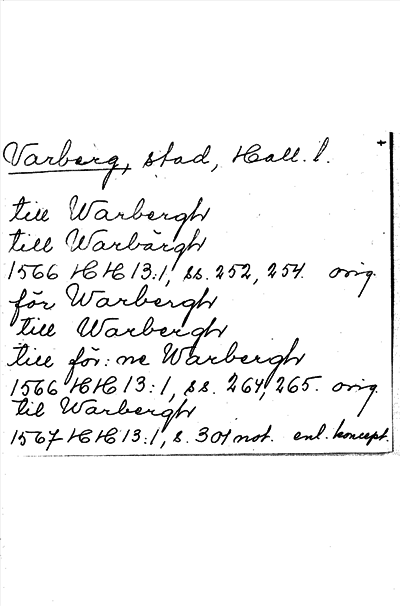 Varberg, stad, Hall. l. +
till Warbergh
till Warbärgh
1566 HH 13:1, ss. 252, 254. orig.
för Warbergh
till Warbergh
till för: ne Warbergh
1566 HH 13:1, ss. 264, 265. orig.
til Warbergh
1567 HH 13:1, s. 301 not. enl. koncept.